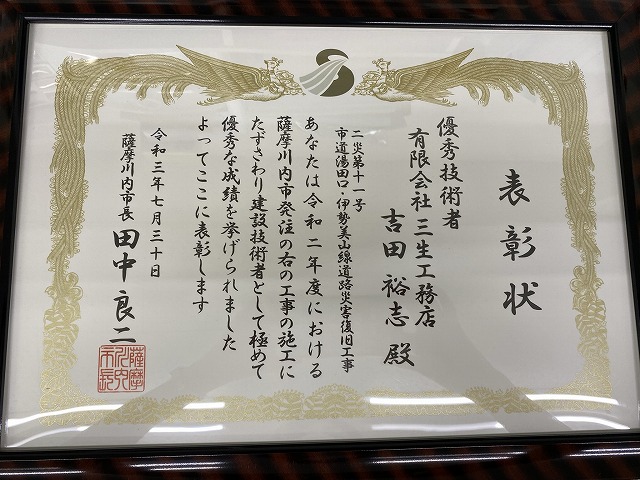 表彰状
優秀技術者
有限会社三生工務店
吉田裕志殿
二災第十一号
市道湯田口・伊勢美山線道路災害復旧工事
あなたは令和二年度における
薩摩川内市発注の右の工事の施工に
たずさわり建設技術者として極めて
優秀な成績を挙げられました
よってここに表彰します
令和三年七月三十日
薩摩川内市長 田中良二
薩摩
川内
市長